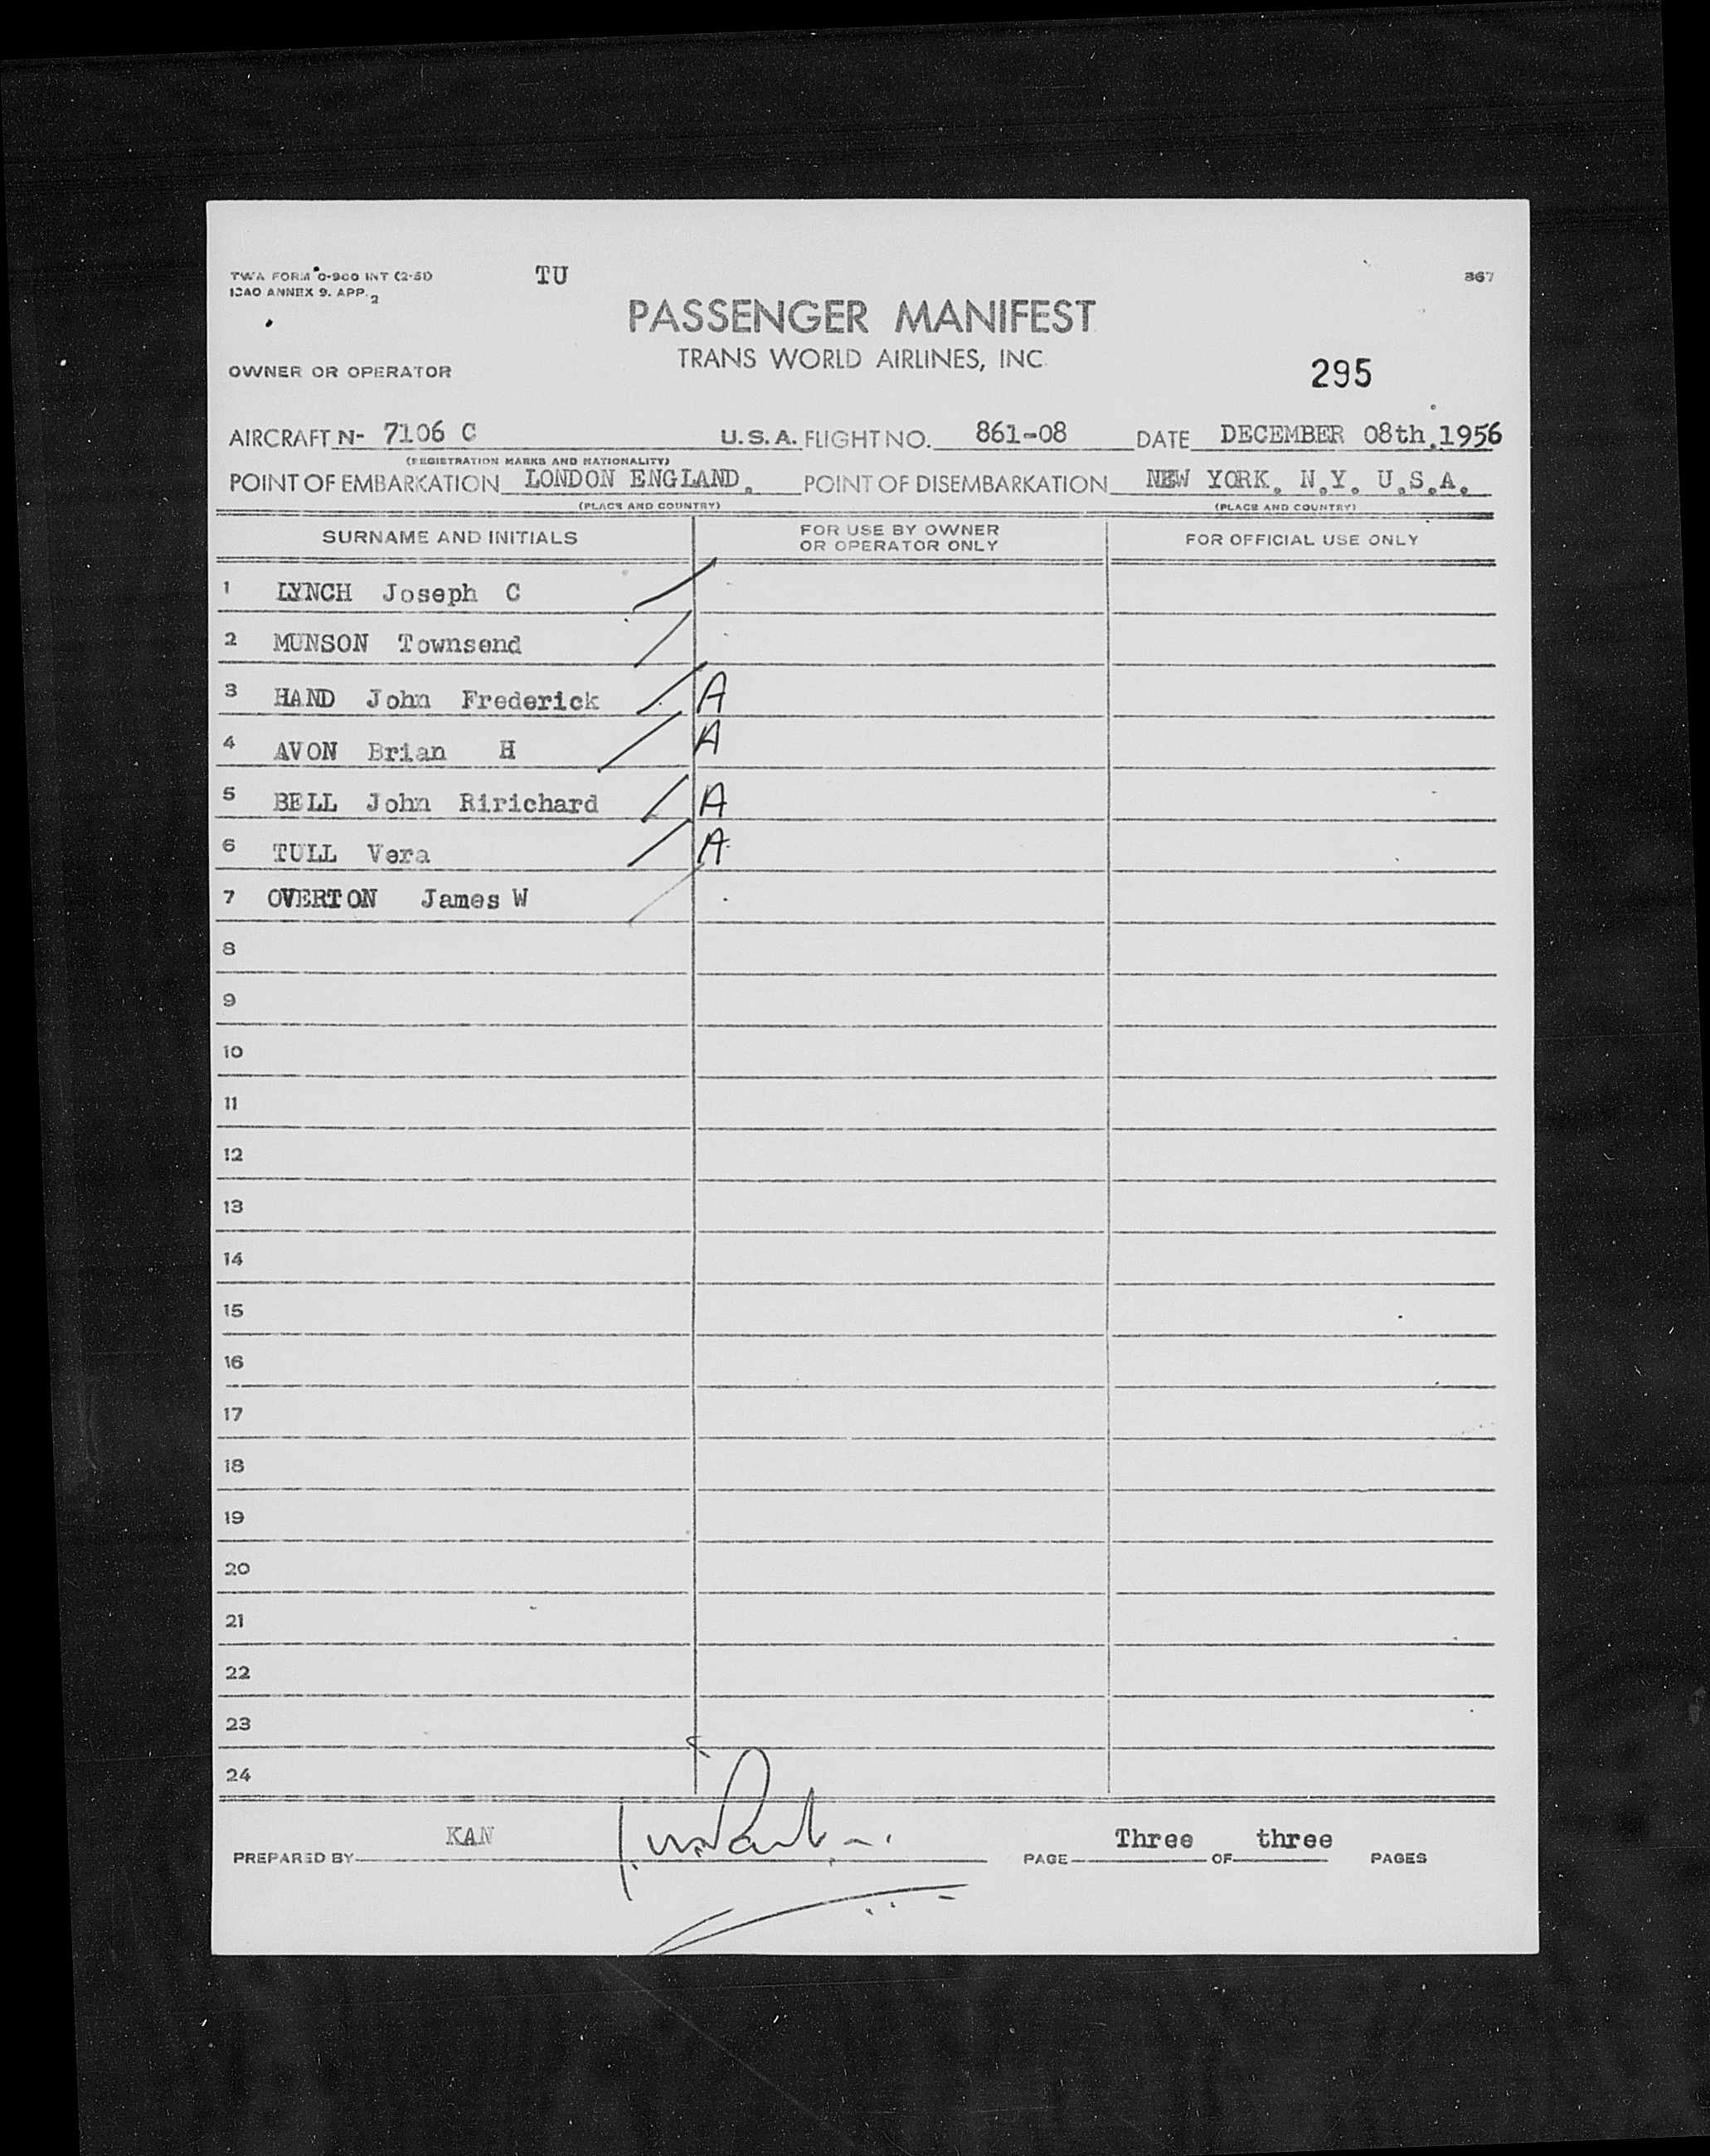 TWA FORM 0-900 INT (2-51)
ICAO ANNEX 9. APP. 2
TU
867
PASSENGER MANIFEST
TRANS WORLD AIRLINES, INC.
OWNER OR OPERATOR
295
AIRCRAFT N- 7106 C U.S.A. FLIGHT NO. 861-08 DATE DECEMBER 08th.1956
(REGISTRATION MARKS AND NATIONALITY)
POINT OF EMBARKATION LONDON ENGLAND. POINT OF DISEMBARKATION NEW YORK. N.Y. U.S.A.
(PLACE AND COUNTRY) (PLACE AND COUNTRY)
SURNAME AND INITIALS FOR USE BY OWNER OR OPERATOR ONLY FOR OFFICIAL USE ONLY
1 LYNCH Joseph C
2 MUNSON Townsend
3 HAND John Frederick A
4 AVON Brian H A
5 BELL John Ririchard A
6 TULL Vera A
7 OVERTON James W
8
9
10
11
12
13
14
15
16
17
18
19
20
21
22
23
24
PREPARED BY KAN PAGE Three OF three PAGES